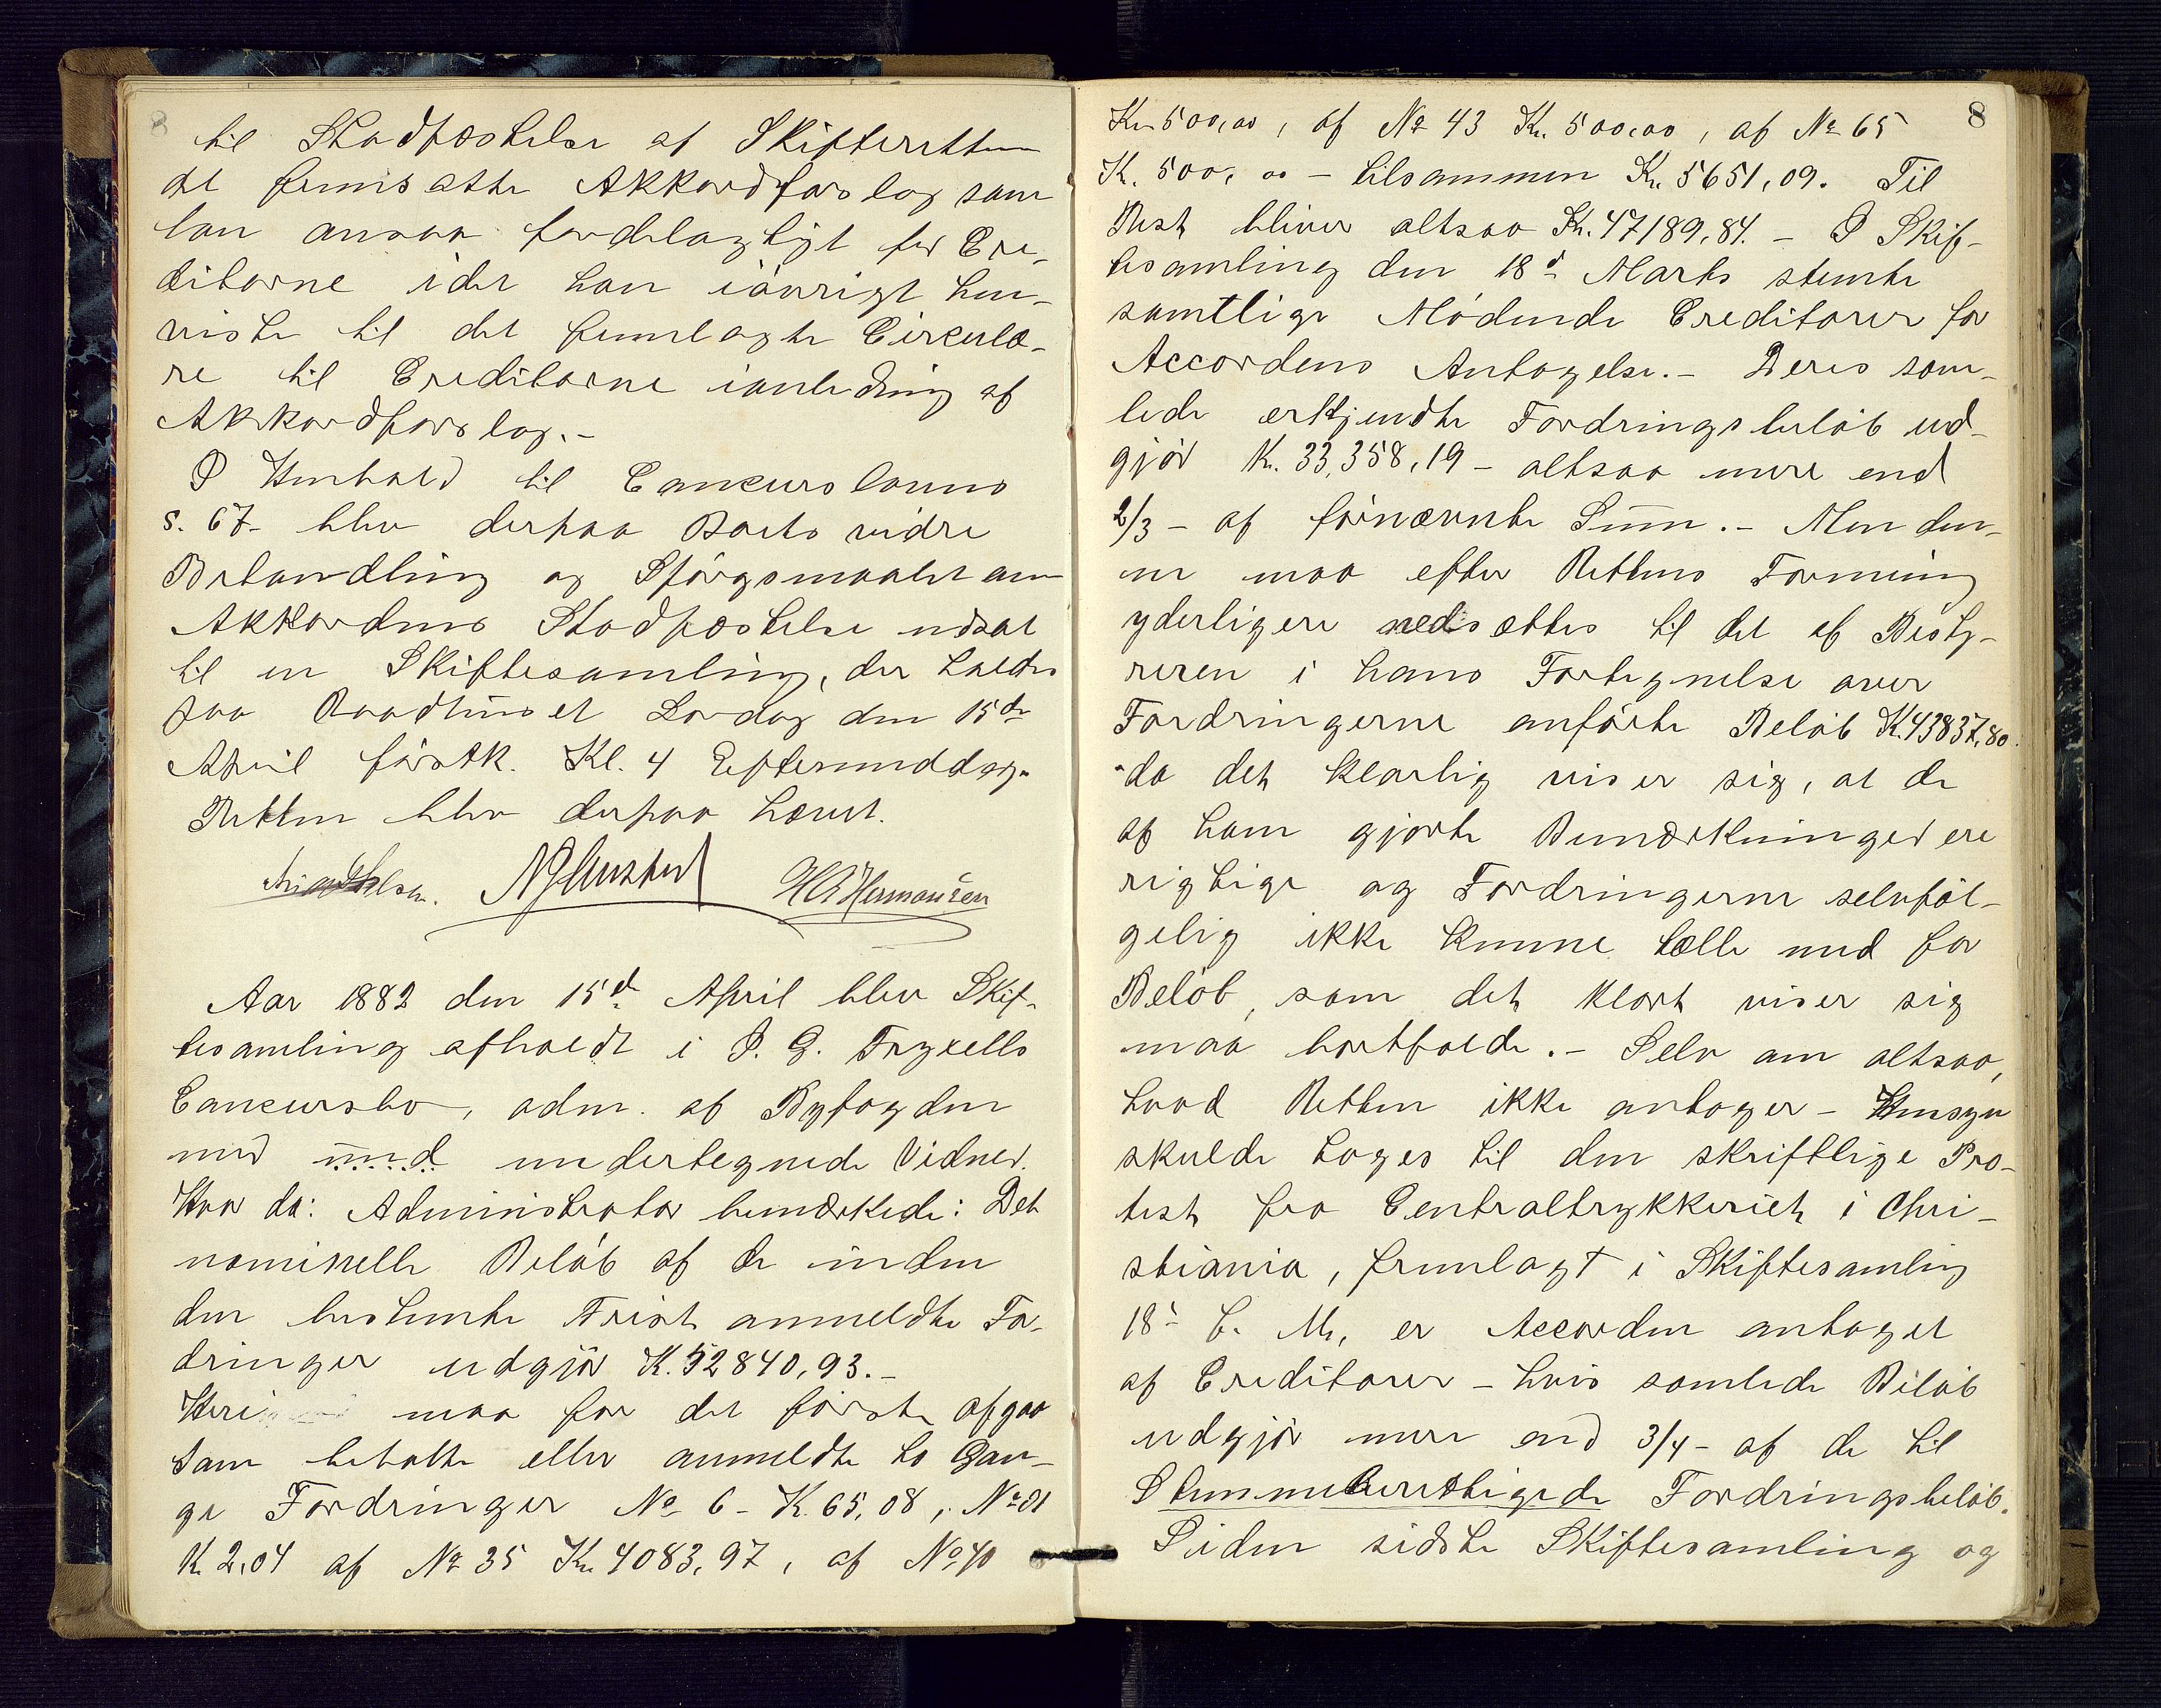 til Stadfæstelse af Skifteretten
det fremsatte Akkordforslag som
han ansaa fordelagtigt for Cre-
ditorne idet han iøvrigt hen-
viste til det fremlagte Circulæ-
re til Creditorne ianledning af
Akkordforslag.-
I Henhold til Concurslovens
s. 67- blev derpaa Boets vidre
Behandling og Spørgsmaalet om
Akkordens Stadfæstelse udsat
til en Skiftesamling, der holdes
paa Raadhuset Lørdag den 15de
April førstk. Kl. 4 Eftermiddag.
Retten blev derpaa hævet.
H Hermansen
Aar 1882 den 15d April blev Skif-
tesamling afholdt i I. G. Fryxells
Concursbo, adm. af Byfogden
med med undertegnede Vidner.
Hvor da: Administrator bemærkede: Det
nominelle Beløb af de inden
den bestemte Frist anmeldte For-
dringer udgjør K. 52840,93.-
Heri maa for det første afgaa
som betalte eller anmeldte to Gan-
ge Fordringer No 6 - K. 65,08, No 21
K 2,04 af No 35 Kr. 4083,97, af No 40
8
Kr 500,00, af No 43 Kr. 500,00, af No 65
K. 500,00 - tilsammen Kr. 5651,09. Til
Rest bliver altsaa Kr. 47189,84. - I Skif-
tesamling den 18d Marts stemte
samtlige Mødende Creditorer for
Accordens Antagelse. - Deres sam-
lede erkjendte Fordringsbeløb ud-
gjør K. 33,358,19 - altsaa mere end
2/3 - af førnævnte Sum. - Men den-
ne maa efter Rettens Formening
yderligere nedsættes til det af Besty-
reren i hans Fortegnelse over
Fordringerne anførte Beløb K. 43837,80.
da det klarlig viser sig, at de
af ham gjorte Bemærkninger ere
rigtige og Fordringerne selvføl-
gelig ikke kunne tælle med for
Beløb, som det klart viser sig
maa bortfalde. - Selv om altsaa,
hvad Retten ikke antager - Hensyn
skulde tages til den skriftlige Pro-
test fra Centraltrykkeriet i Chri-
stiania, fremlagt i Skiftesamling
18' f. M, er Accorden antaget
af Creditorer - hvis samlede Beløb
udgjør mere end 3/4 - af de til
Stemmeberettigede Fordringsbeløb.
Siden sidste Skiftesamling og